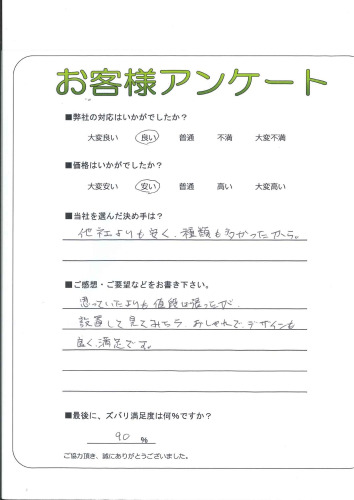 お客様アンケート
■弊社の対応はいかがでしたか？
大変良い 良い 普通 不満 大変不満
■価格はいかがでしたか？
大変安い 安い 普通 高い 大変高い
■当社を選んだ決め手は？
他社よりも安く、種類も多かったから。
■ご感想・ご要望などをお書き下さい。
思っていたよりも値段は張ったが、
設置して見てみたら、おしゃれで、デザインも
良く、満足です。
■最後に、ズバリ満足度は何%ですか？
90 %
ご協力頂き、誠にありがとうございました。